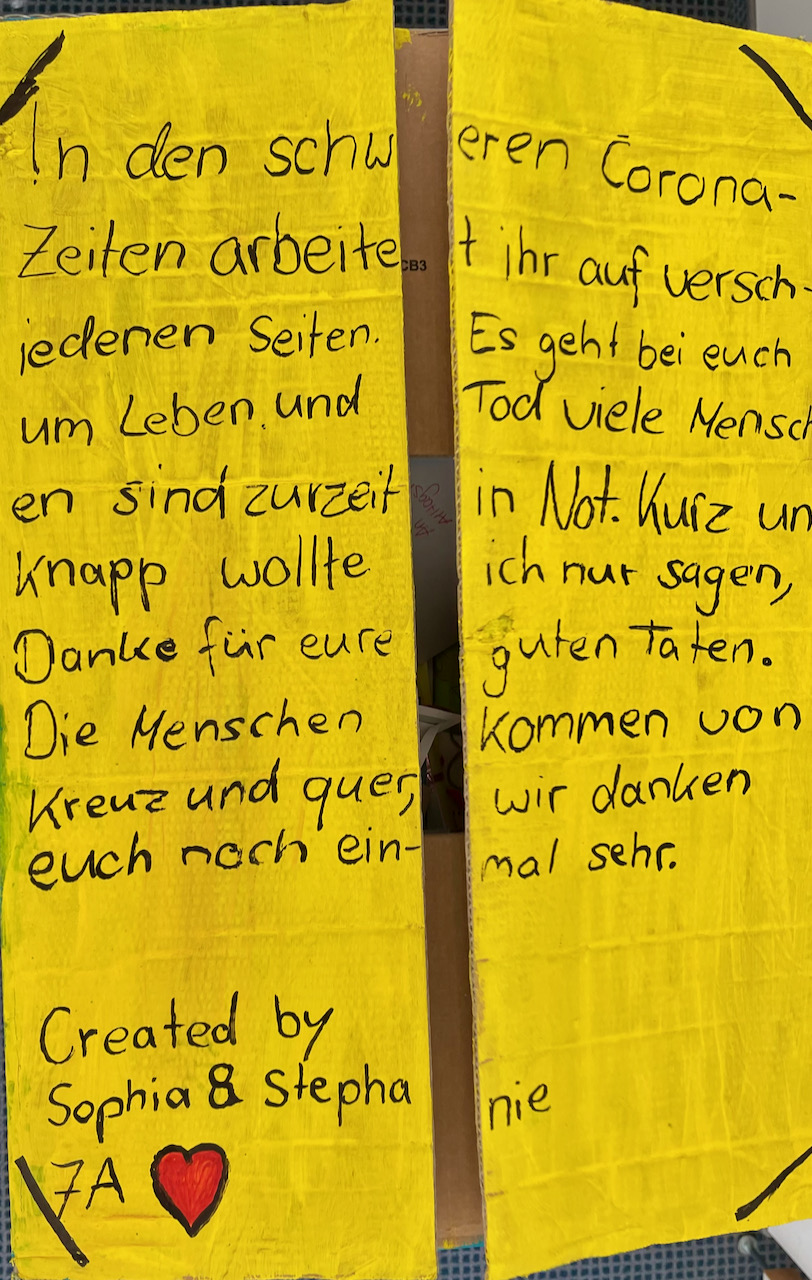 In den schweren Corona-
Zeiten arbeitet ihr auf versch-
iedenen Seiten. Es geht bei euch
um Leben und Tod viele Mensch
en sind zurzeit in Not. Kurz un
knapp wollte ich nur sagen,
Danke für eure guten Taten.
Die Menschen kommen von
Kreuz und quer, wir danken
euch noch ein-mal sehr.
Created by
Sophia & Stephanie
7A
CB3